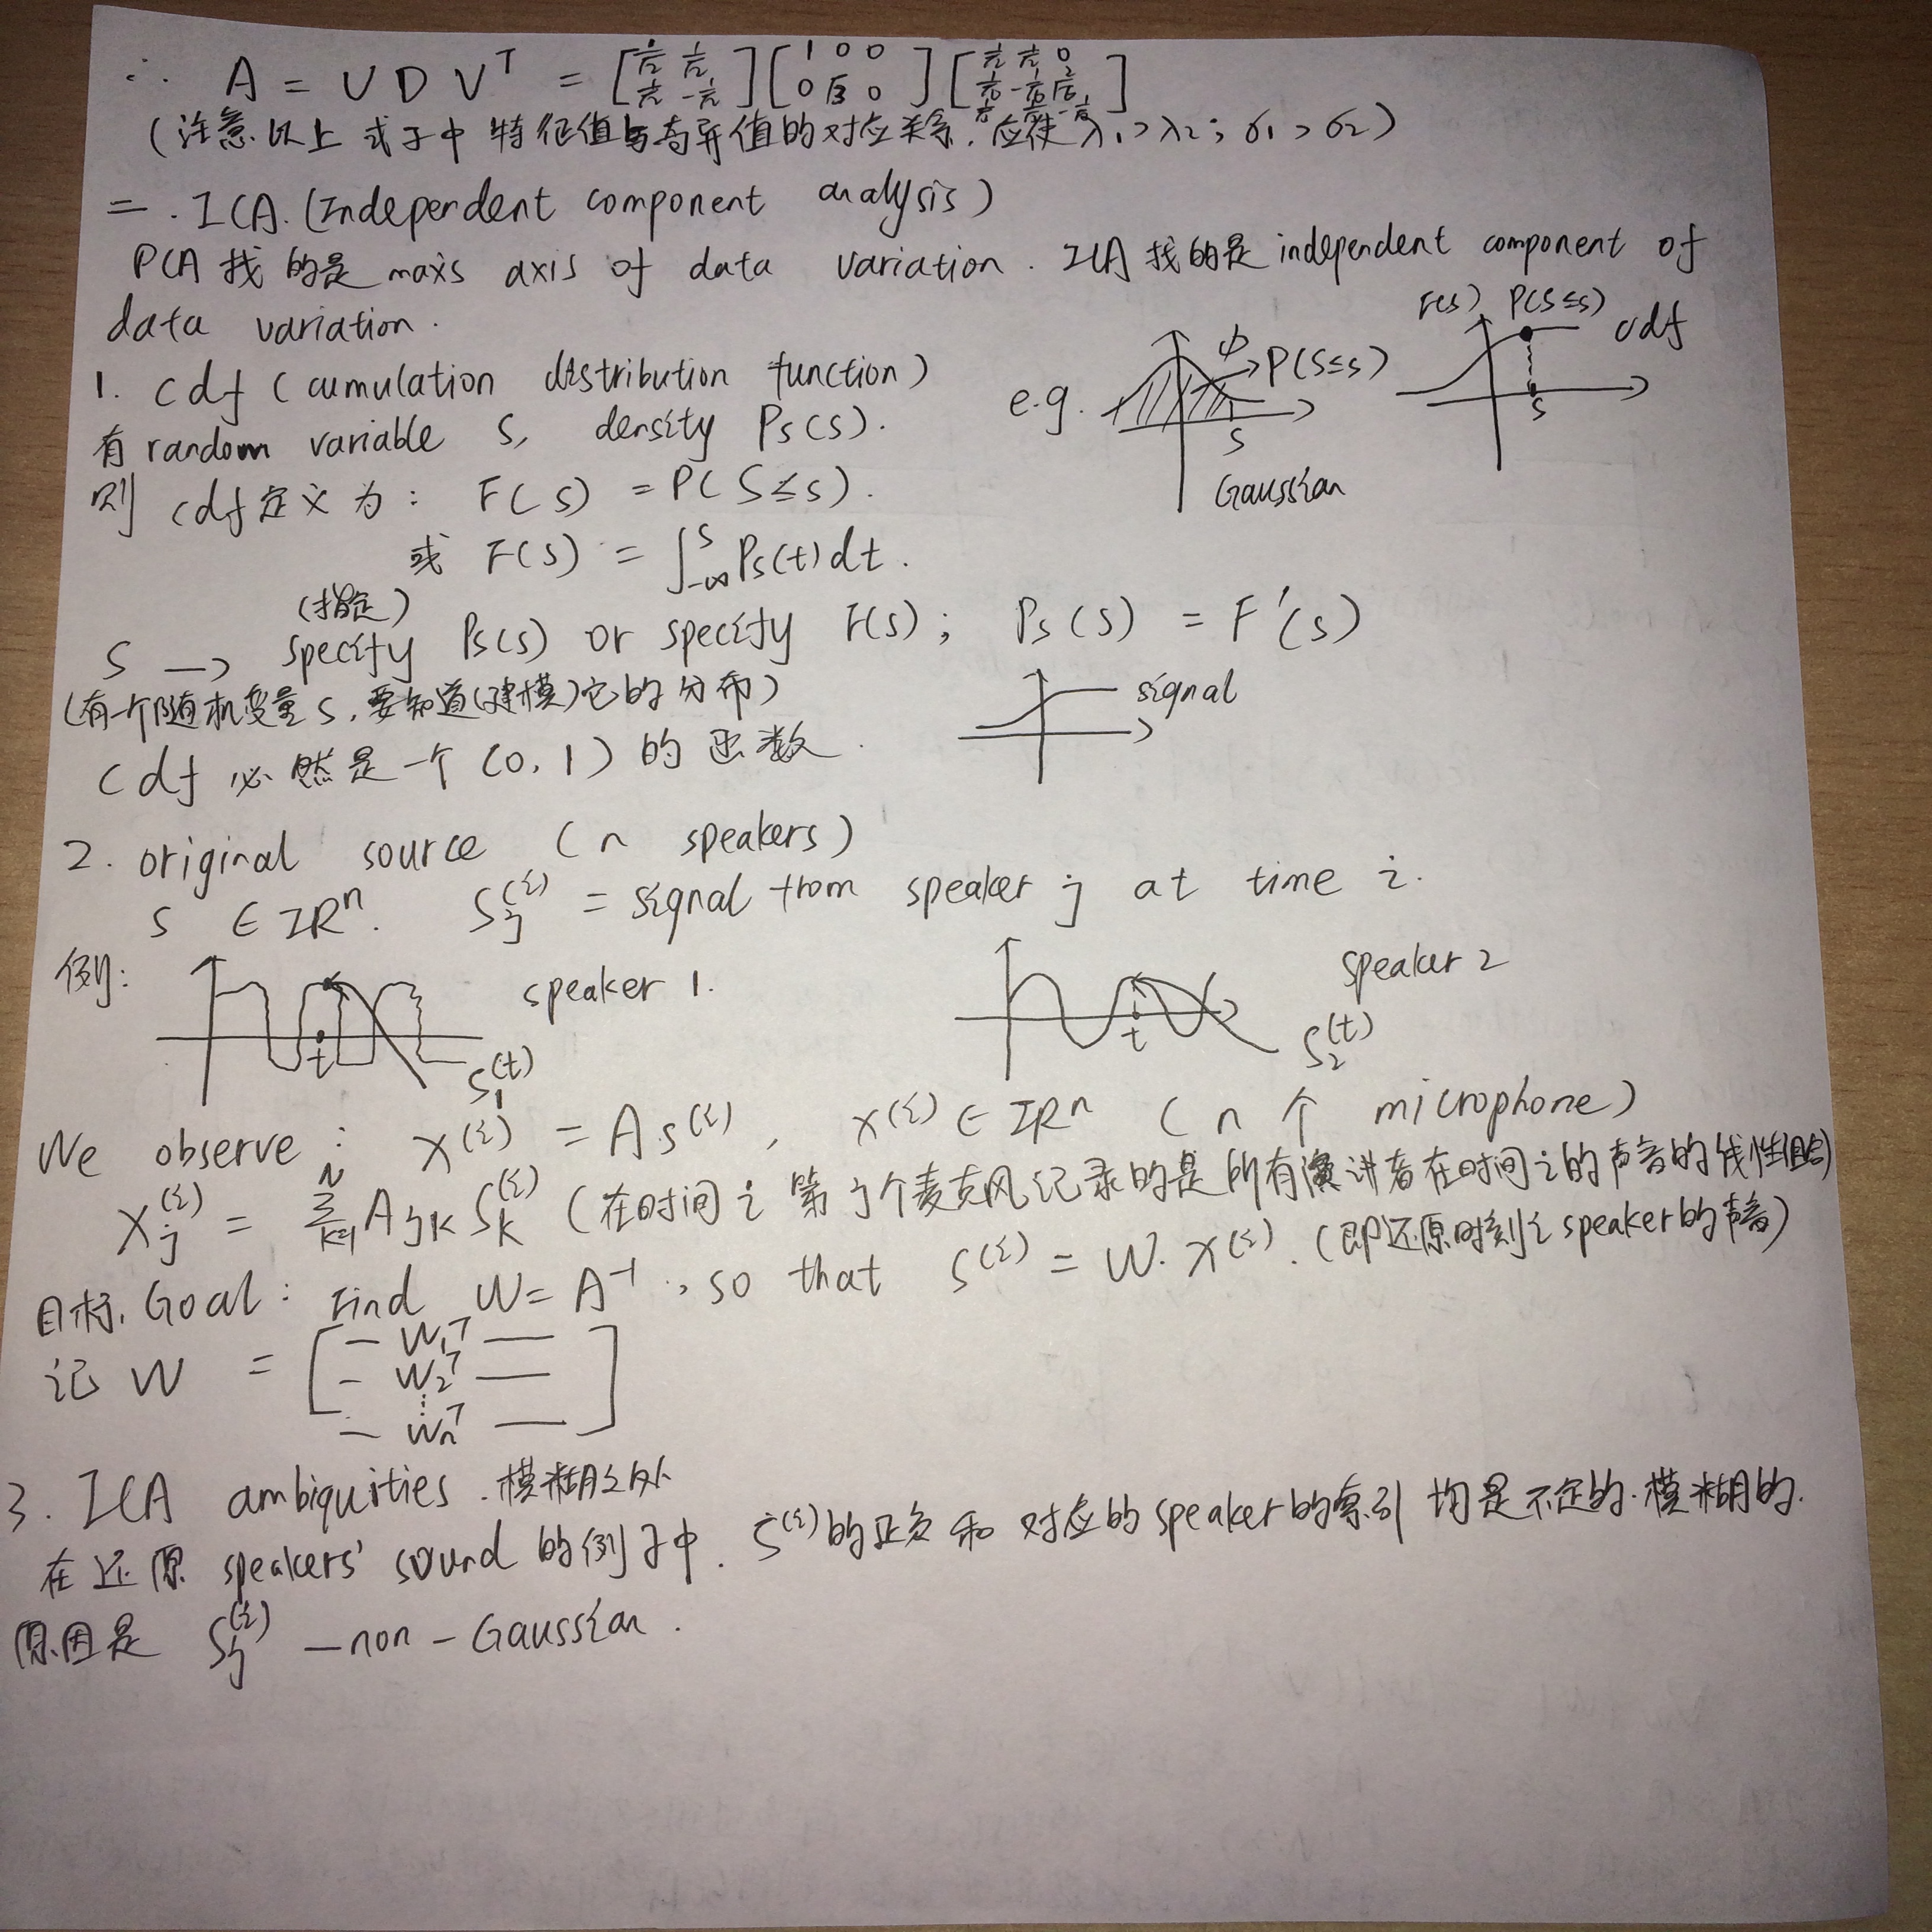 ∴ A = U D V^T = [1/√2 1/√2; 1/√2 -1/√2] [1 0 0; 0 √3 0] [1/√2 1/√2 0; 1/√6 -1/√6 2/√6; ]
(注意以上式子中特征值与奇异值的对应关系, 应使 λ1 > λ2; σ1 > σ2)
二. ICA. (Independent component analysis)
PCA 找的是 axis of data variation. ICA 找的是 independent component of
data variation.
1. cdf (cumulation distribution function)
有 random variable s, density Ps(s).
则 cdf 定义为: F(s) = P(S≤s).
或 F(s) = ∫_{-∞}^{s} Ps(t) dt.
e.g.
P(S≤s)
s
Gaussian
F(s) P(S≤s) cdf
s
(指定)
S → specify Ps(s) or specify F(s); Ps(s) = F'(s)
(有一个随机变量 s, 要知道(建模)它的分布)
signal
cdf 必然是一个 (0, 1) 的函数.
2. original source (n speakers)
s ∈ IR^n. S_j^(i) = signal from speaker j at time i.
例:
speaker 1.
t
S_1^(t)
speaker 2
t
S_2^(t)
We observe: x^(i) = A s^(i), x^(i) ∈ IR^n (n 个 microphone)
x_j^(i) = Σ_{k=1}^{N} A_jk S_k^(i) (在时间 i 第 j 个麦克风记录的是所有演讲者在时间 i 的声音的线性组合)
目标, Goal: Find W = A^-1, so that s^(i) = W·x^(i). (即还原时刻 i speaker 的声音)
记 W = [— W_1^T —
— W_2^T —
⋮
— W_n^T —]
3. ICA ambiquities. 模糊之处
在还原 speakers' sound 的例子中. S^(i) 的正负和对应的 speaker 的索引均是不定的. 模糊的.
原因是 S_j^(i) — non - Gaussian.